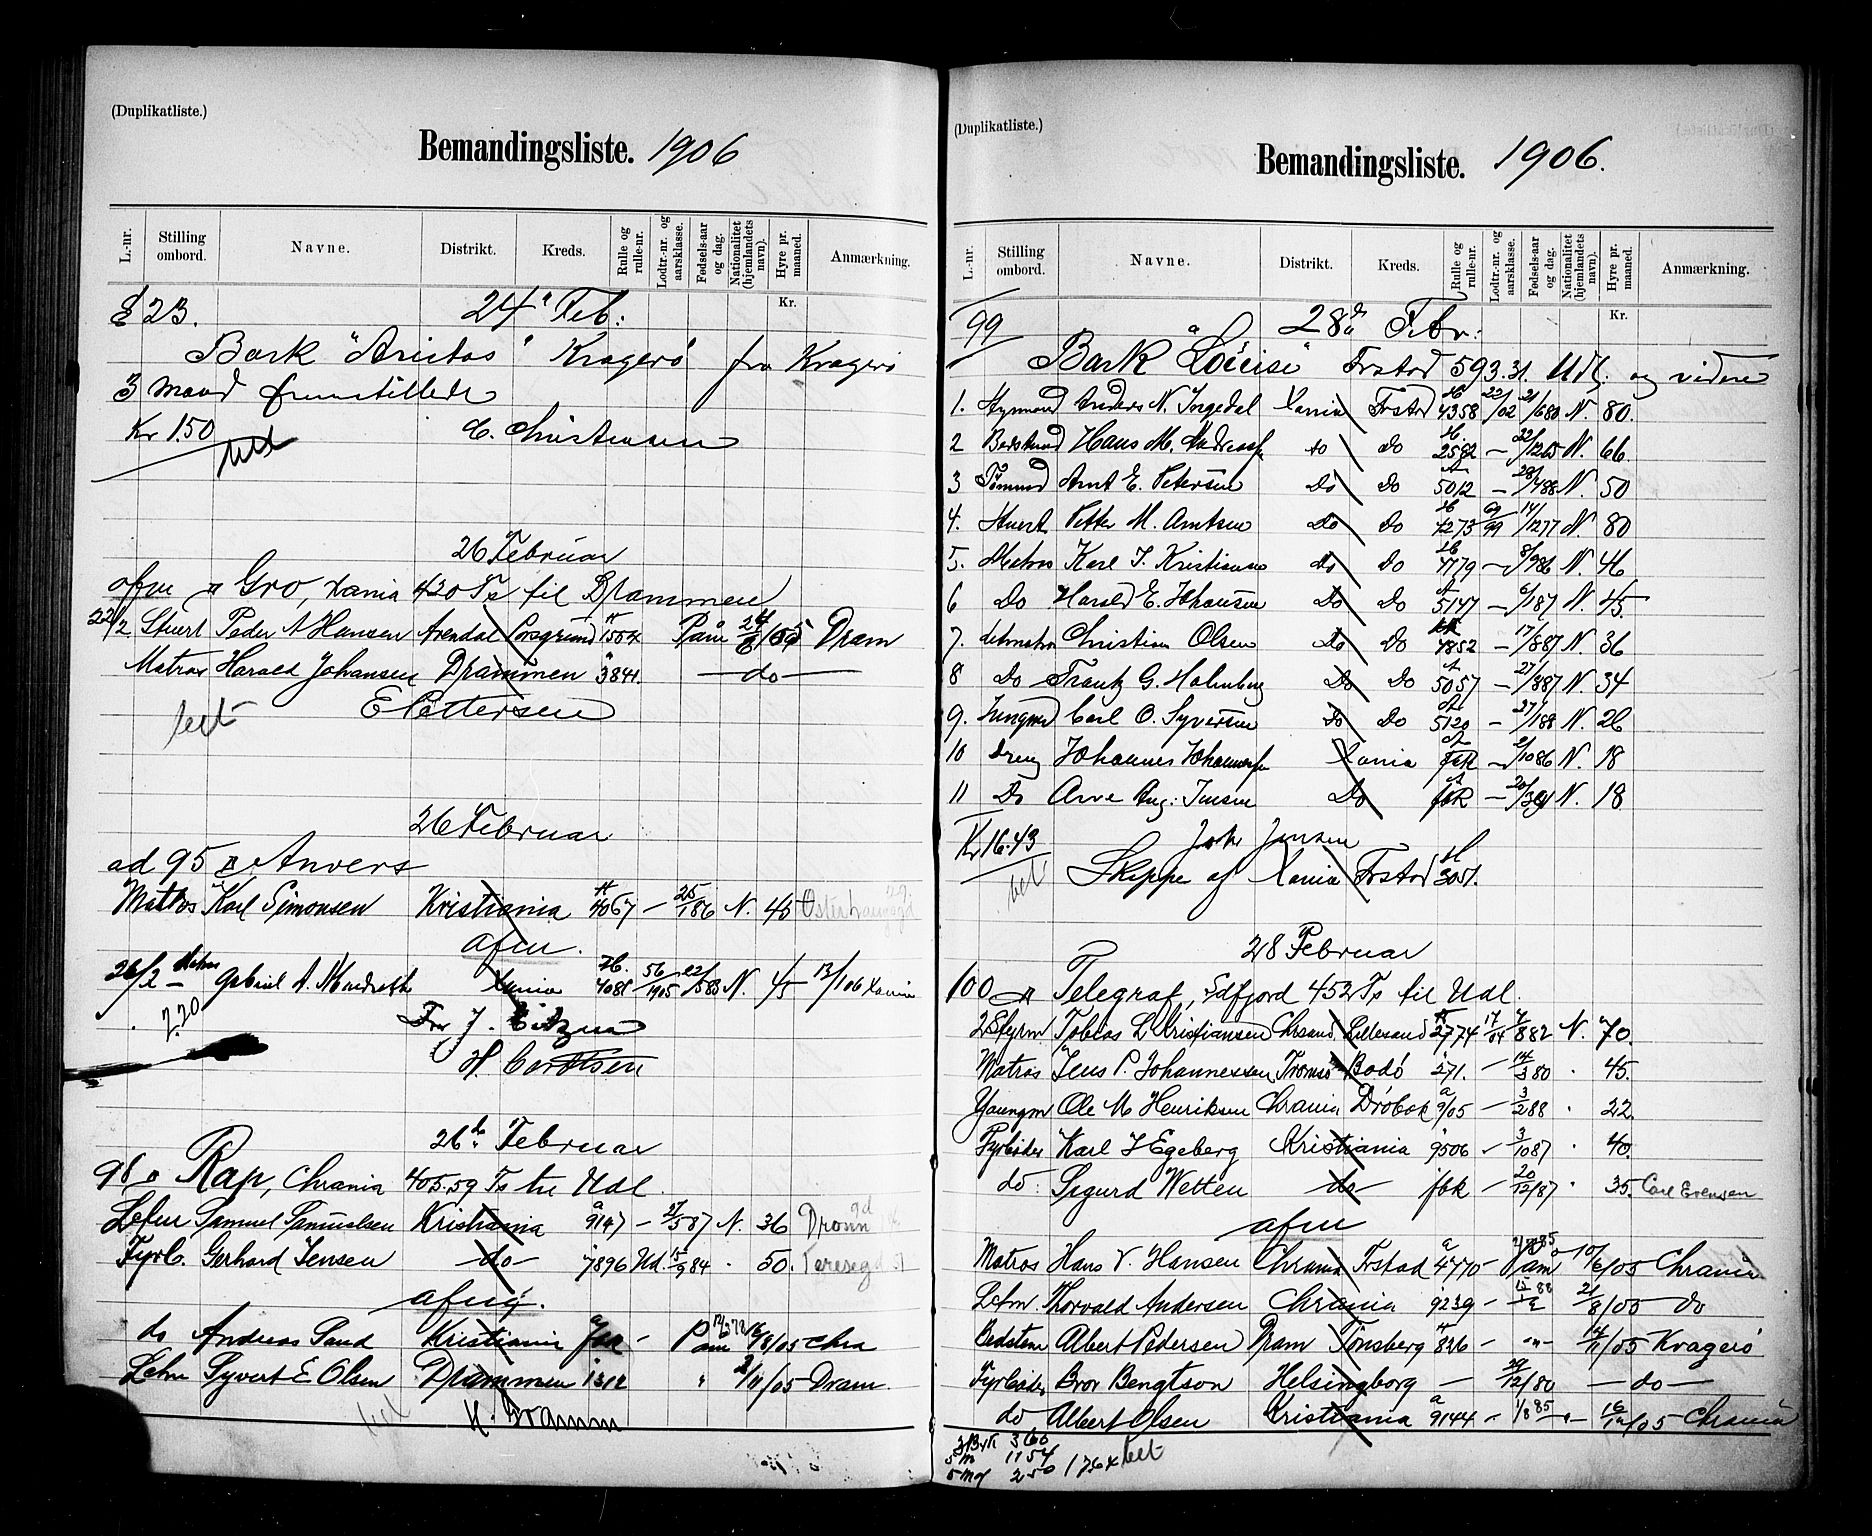 (Duplikatliste.)
Bemandingsliste. 1906
L.-nr. Stilling ombord. Navne. Distrikt. Kreds. Rulle og rulle-nr. Lodtr.-nr. og aarsklasse. Fødsels-aar og dag. Nationalitet (hjemlandets navn). Hyre pr. maaned. Anmærkning.
Kr.
24 Feb:
Bark "Aristos" Kragerø fra Kragerø
3 mand
Kr 1.50 C. Christensen
bet
26 Februar
afm Gro, Xania 420 Ts til Drammen
22/2 Stuert Peder A Hansen Arendal Porsgrund 1554 Paam Dram
Matros Harald Johansen Drammen 3841. — do —
bet E Pettersen
26 Februar
ad 95 Anvers
Matros Karl Simonsen Kristiania 4067 — 25/186 N. 45
afm.
26/2 Gabriel A. Xania 4081 56/1905 22/583 N. 45 13/106 Xania
2.20 For J.
26de Februar
98 Rap, Chrania 405.59 Ts til Udl.
Letm Samuel Samuelsen Kristiania 9147 — 21/587 N. 36 Dramm
Fyrb. Gerhard Jensen — do — 7896 Ud. 15/984 . 50.
afmg.
do Andreas Sand Kristiania fbk — Paam 16/8/05 Chra
Letm Syvert E Olsen Drammen 1312 " 2/11/05 Dram.
bet
(Duplikatliste.)
Bemandingsliste. 1906.
L.-nr. Stilling ombord. Navne. Distrikt. Kreds. Rulle og rulle-nr. Lodtr.-nr. og aarsklasse. Fødsels-aar og dag. Nationalitet (hjemlandets navn). Hyre pr. maaned. Anmærkning.
Kr.
99 28de Febr:
Bark "Lovise" Frstad 593.31. Udl. og videre
1. Styrmand Anders N. Ingedal Xania Frstad 4358 22/02 21/680 N. 80.
2 Hans M. Andreassen do do 2582 — 22/1265 N. 66
3 Tømmd Arnt E. Petersen Do Do 5012 — 28/488 N. 50
4. Stuert Petter M. Arntsen Do Do 4273 69/99 14/1277 N. 80
5. Matros Karl J. Kristiansen do Do 4779 — 8/986 N. 46
6 Do Harald E. Johansen Do Do 5147 — 6/187 N. 45
7. Letmatros Christian Olsen Do Do 4852 — 17/887 N. 36
8 Do Frantz G. Holmberg Do Do 5057 — 27/887 N. 34
9. Jungmd Carl O. Syversen Do Do 5120 — 27/188 N. 26
10 Dreng Johannes Johannessen Xania fbk — 2/1086 N. 18
11 Do Arne Aug: Jensen Do fbk — N. 18
Kr 16.43 Johs Jensen
bet Skipper af Xania Frstad 3051.
28 Februar
100 Telegraf, Edfjord 452 Ts til Udl.
2 Styrm Tobias L Kristiansen Chrsand Lillesand 2774 17/04 7/882 N. 70.
Matros Jens P. Johannessen Tromsø Bodø 271. — 14/380 . 45.
Youngm Ole M Henriksen Chrania Drøbak 9/05 — 3/288 . 22
Fyrbøder Karl J Egeberg Kristiania 9506 — 3/1087 . 40.
do Sigurd Wetten do fbk — 20/12/87 . 35. Carl Evensen
afm
Matros Hans V. Hansen Chrania Frstad 4770 — Paam 10/6/05 Chrania
Letm. Thorvald Andersen Chrania 9239 — 21/8/05 do
Bedstem Albert Pedersen Dram Tønsberg 826 — —"— 14/11/05 Kragerø
Fyrbøder Bror Bengtson Helsingborg — 29/12/80 — do —
do Albert Olsen Kristiania 9144 — 1/885 —"— 16/12/05 Chrania
360
1154
250 1764 bet